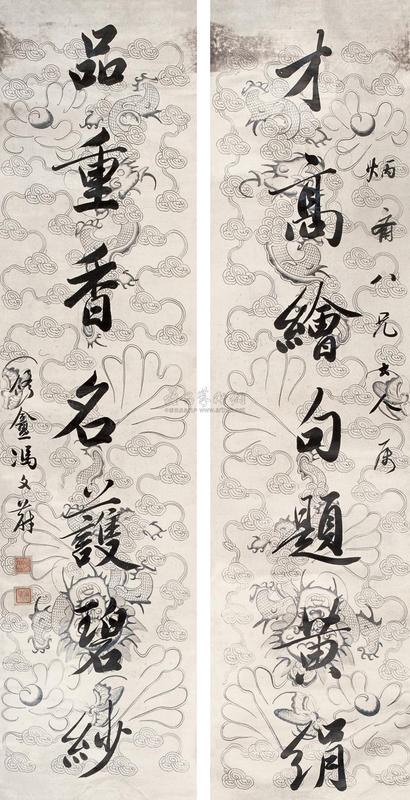 炳齋八兄大人属
才高繪句題黄絹
品重香名護碧紗
修盦馮文蔚